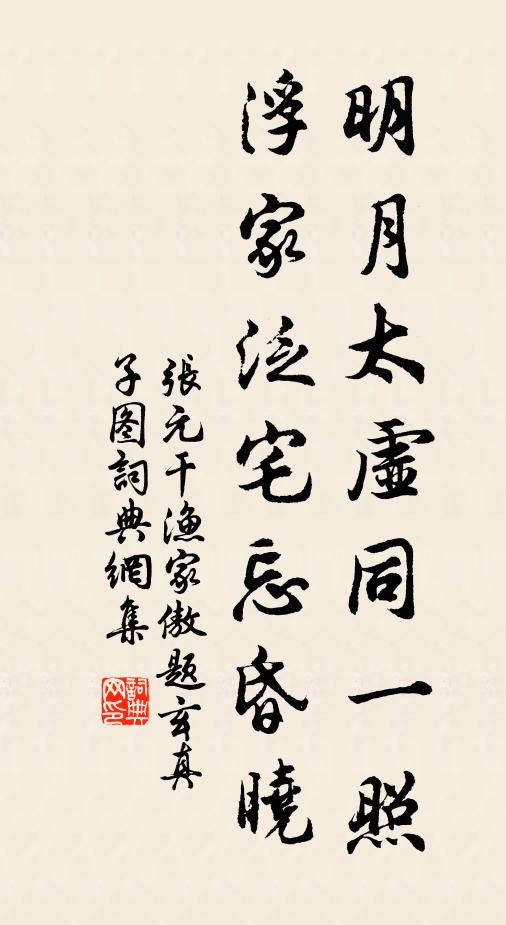 明月太虛同一照
浮家泛宅忘昏曉
張元干漁家傲題玄真
子图詞典網集
詞典网印